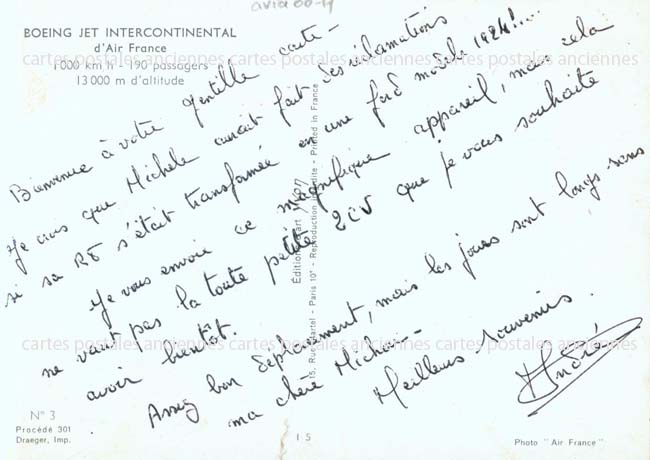 avia 00-14
BOEING JET INTERCONTINENTAL
d'Air France
1 000 km/h - 190 passagers
13 000 m d'altitude
Bienvenue à votre gentille carte -
Je crois que Michèle aurait fait des réclamations
si sa R8 s'était transformée en une ford modèle 1924!...
Je vous envoie ce magnifique appareil, mais cela
ne vaut pas la toute petite 2CV que je vous souhaite
avoir bientôt.
Assez bon déplacement, mais les jours sont longs sans
ma chère Michou -
Meilleurs souvenirs.
André
Editions P.I.
15, Rue Martel - Paris 10e - Reproduction interdite - Printed in France
N° 3
Procédé 301
Draeger, Imp.
1 5
Photo "Air France"
cartes postales anciennes cartes postales anciennes cartes postales anciennes
cartes postales anciennes cartes postales anciennes cartes postales anciennes